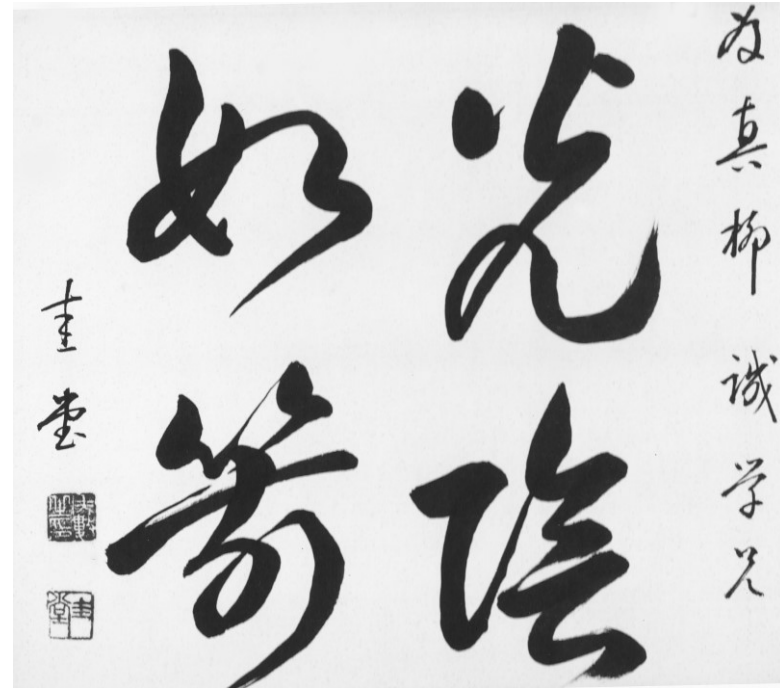 為真柳誠学兄
光陰
如箭
圭堂
圭堂